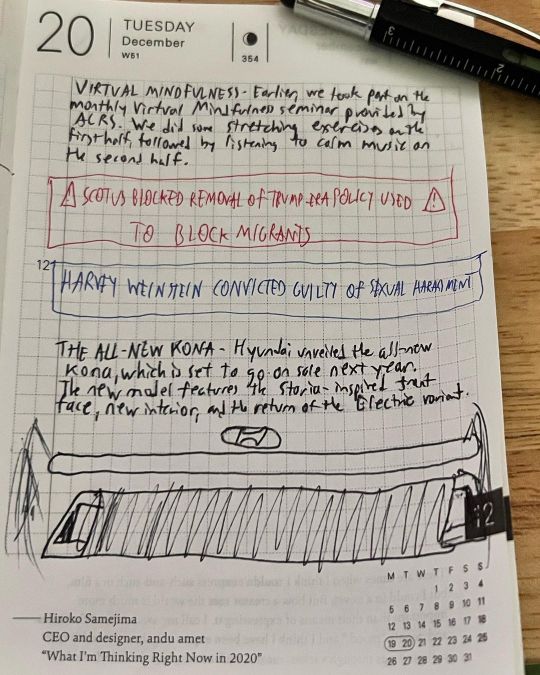 20
TUESDAY
December
W51
354
VIRTUAL MINDFULNESS - Earlier, we took part on the
monthly Virtual Mindfulness seminar provided by
ACRS. We did some stretching exercises on the
first half, followed by listening to calm music on
the second half.
SCOTUS BLOCKED REMOVAL OF TRUMP-ERA POLICY USED
TO BLOCK MIGRANTS
12
HARVEY WEINSTEIN CONVICTED GUILTY OF SEXUAL HARASSMENT
THE ALL-NEW KONA - Hyundai unveiled the all-new
Kona, which is set to go on sale next year.
The new model features the Staria-inspired front
face, new interior, and the return of the Electric variant.
12
M T W T F S S
1 2 3 4
5 6 7 8 9 10 11
12 13 14 15 16 17 18
19 20 21 22 23 24 25
26 27 28 29 30 31
Hiroko Samejima
CEO and designer, andu amet
"What I'm Thinking Right Now in 2020"
3
2